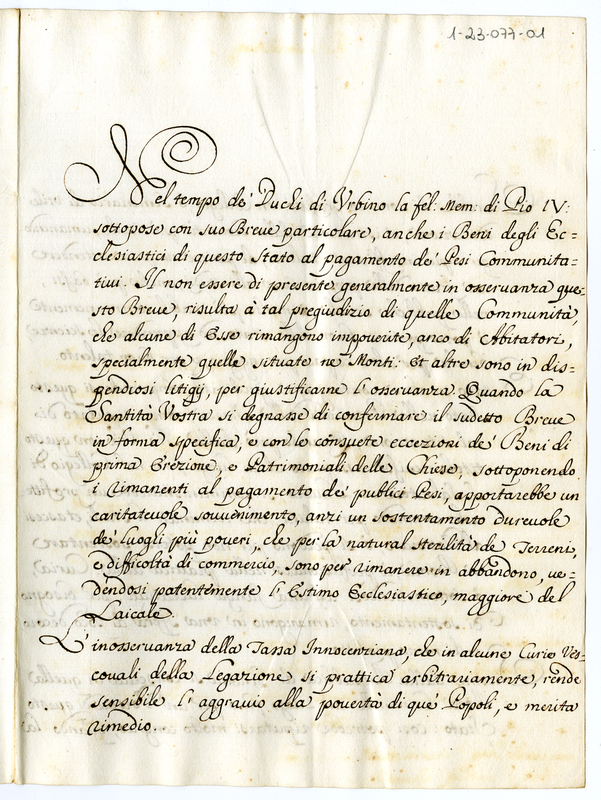 1-23-077-01
Nel tempo de' Duchi di Vrbino la fel: Mem: di Pio IV:
sottopose con suo Breve particolare, anche i Beni degli Ec=
clesiastici di questo Stato al pagamento de' Pesi Communita=
tivi. Il non essere di presente generalmente in osservanza que=
sto Breve, risulta à tal pregiudizio di quelle Communità,
che alcune di Esse rimangono impoverite, anco di Abitatori,
specialmente quelle situate ne' Monti: Et altre sono in dis=
pendiosi litigij, per giustificarne l'osservanza. Quando la
Santità Vostra si degnasse di confermare il sudetto Breve
in forma specifica, e con le consuete eccezioni de' Beni di
prima Erezione, e Patrimoniali delle Chiese, sottoponendo
i rimanenti al pagamento de' publici Pesi, apportarebbe un
caritatevole sovvenimento, anzi un sostentamento durevole
de' luoghi più poveri, che per la natural sterilità de' Terreni,
e difficoltà di commercio, sono per rimanere in abbandono, ve=
dendosi patentemente l'Estimo Ecclesiastico, maggiore del
Laicale.
L'inosservanza della Tassa Innocenziana, che in alcune Curie Ves=
covali della Legazione si prattica arbitrariamente, rende
sensibile l'aggravio alla povertà di que' Popoli, e merita
rimedio.